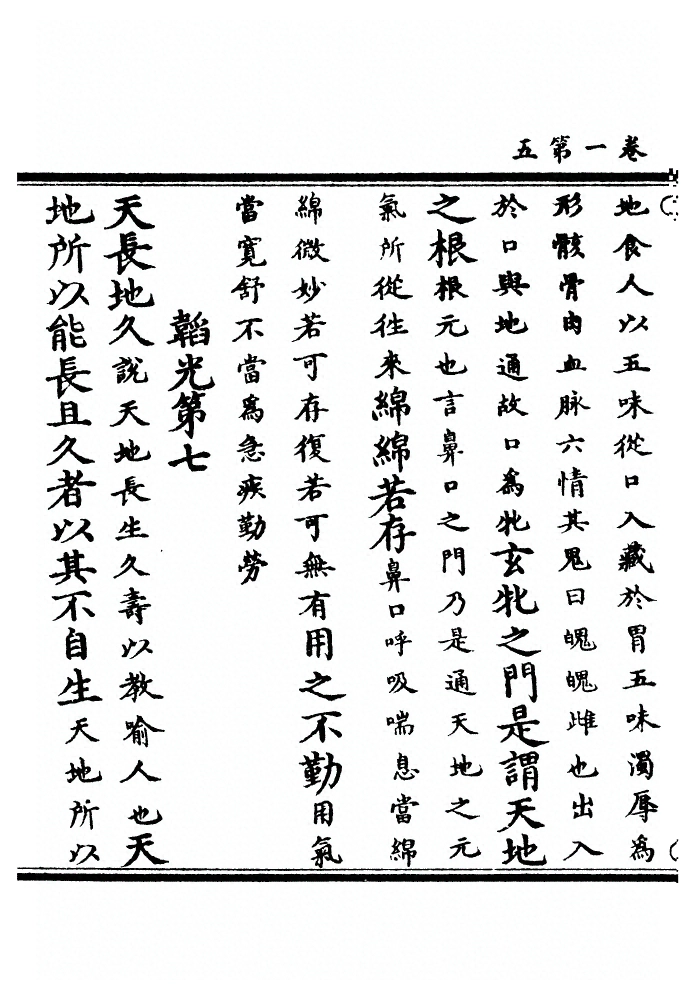 卷一第五
地食人以五味從口入藏於胃五味濁辱為
形骸骨肉血脉六情其鬼曰魄魄雌也出入
於口與地通故口為牝玄牝之門是謂天地
之根根元也言鼻口之門乃是通天地之元
氣所從徃來綿綿若存鼻口呼吸喘息當綿
綿微妙若可存復若可無有用之不勤用氣
當寛舒不當為急疾勤勞
韜光第七
天長地久說天地長生久壽以教喻人也天
地所以能長且久者以其不自生天地所以